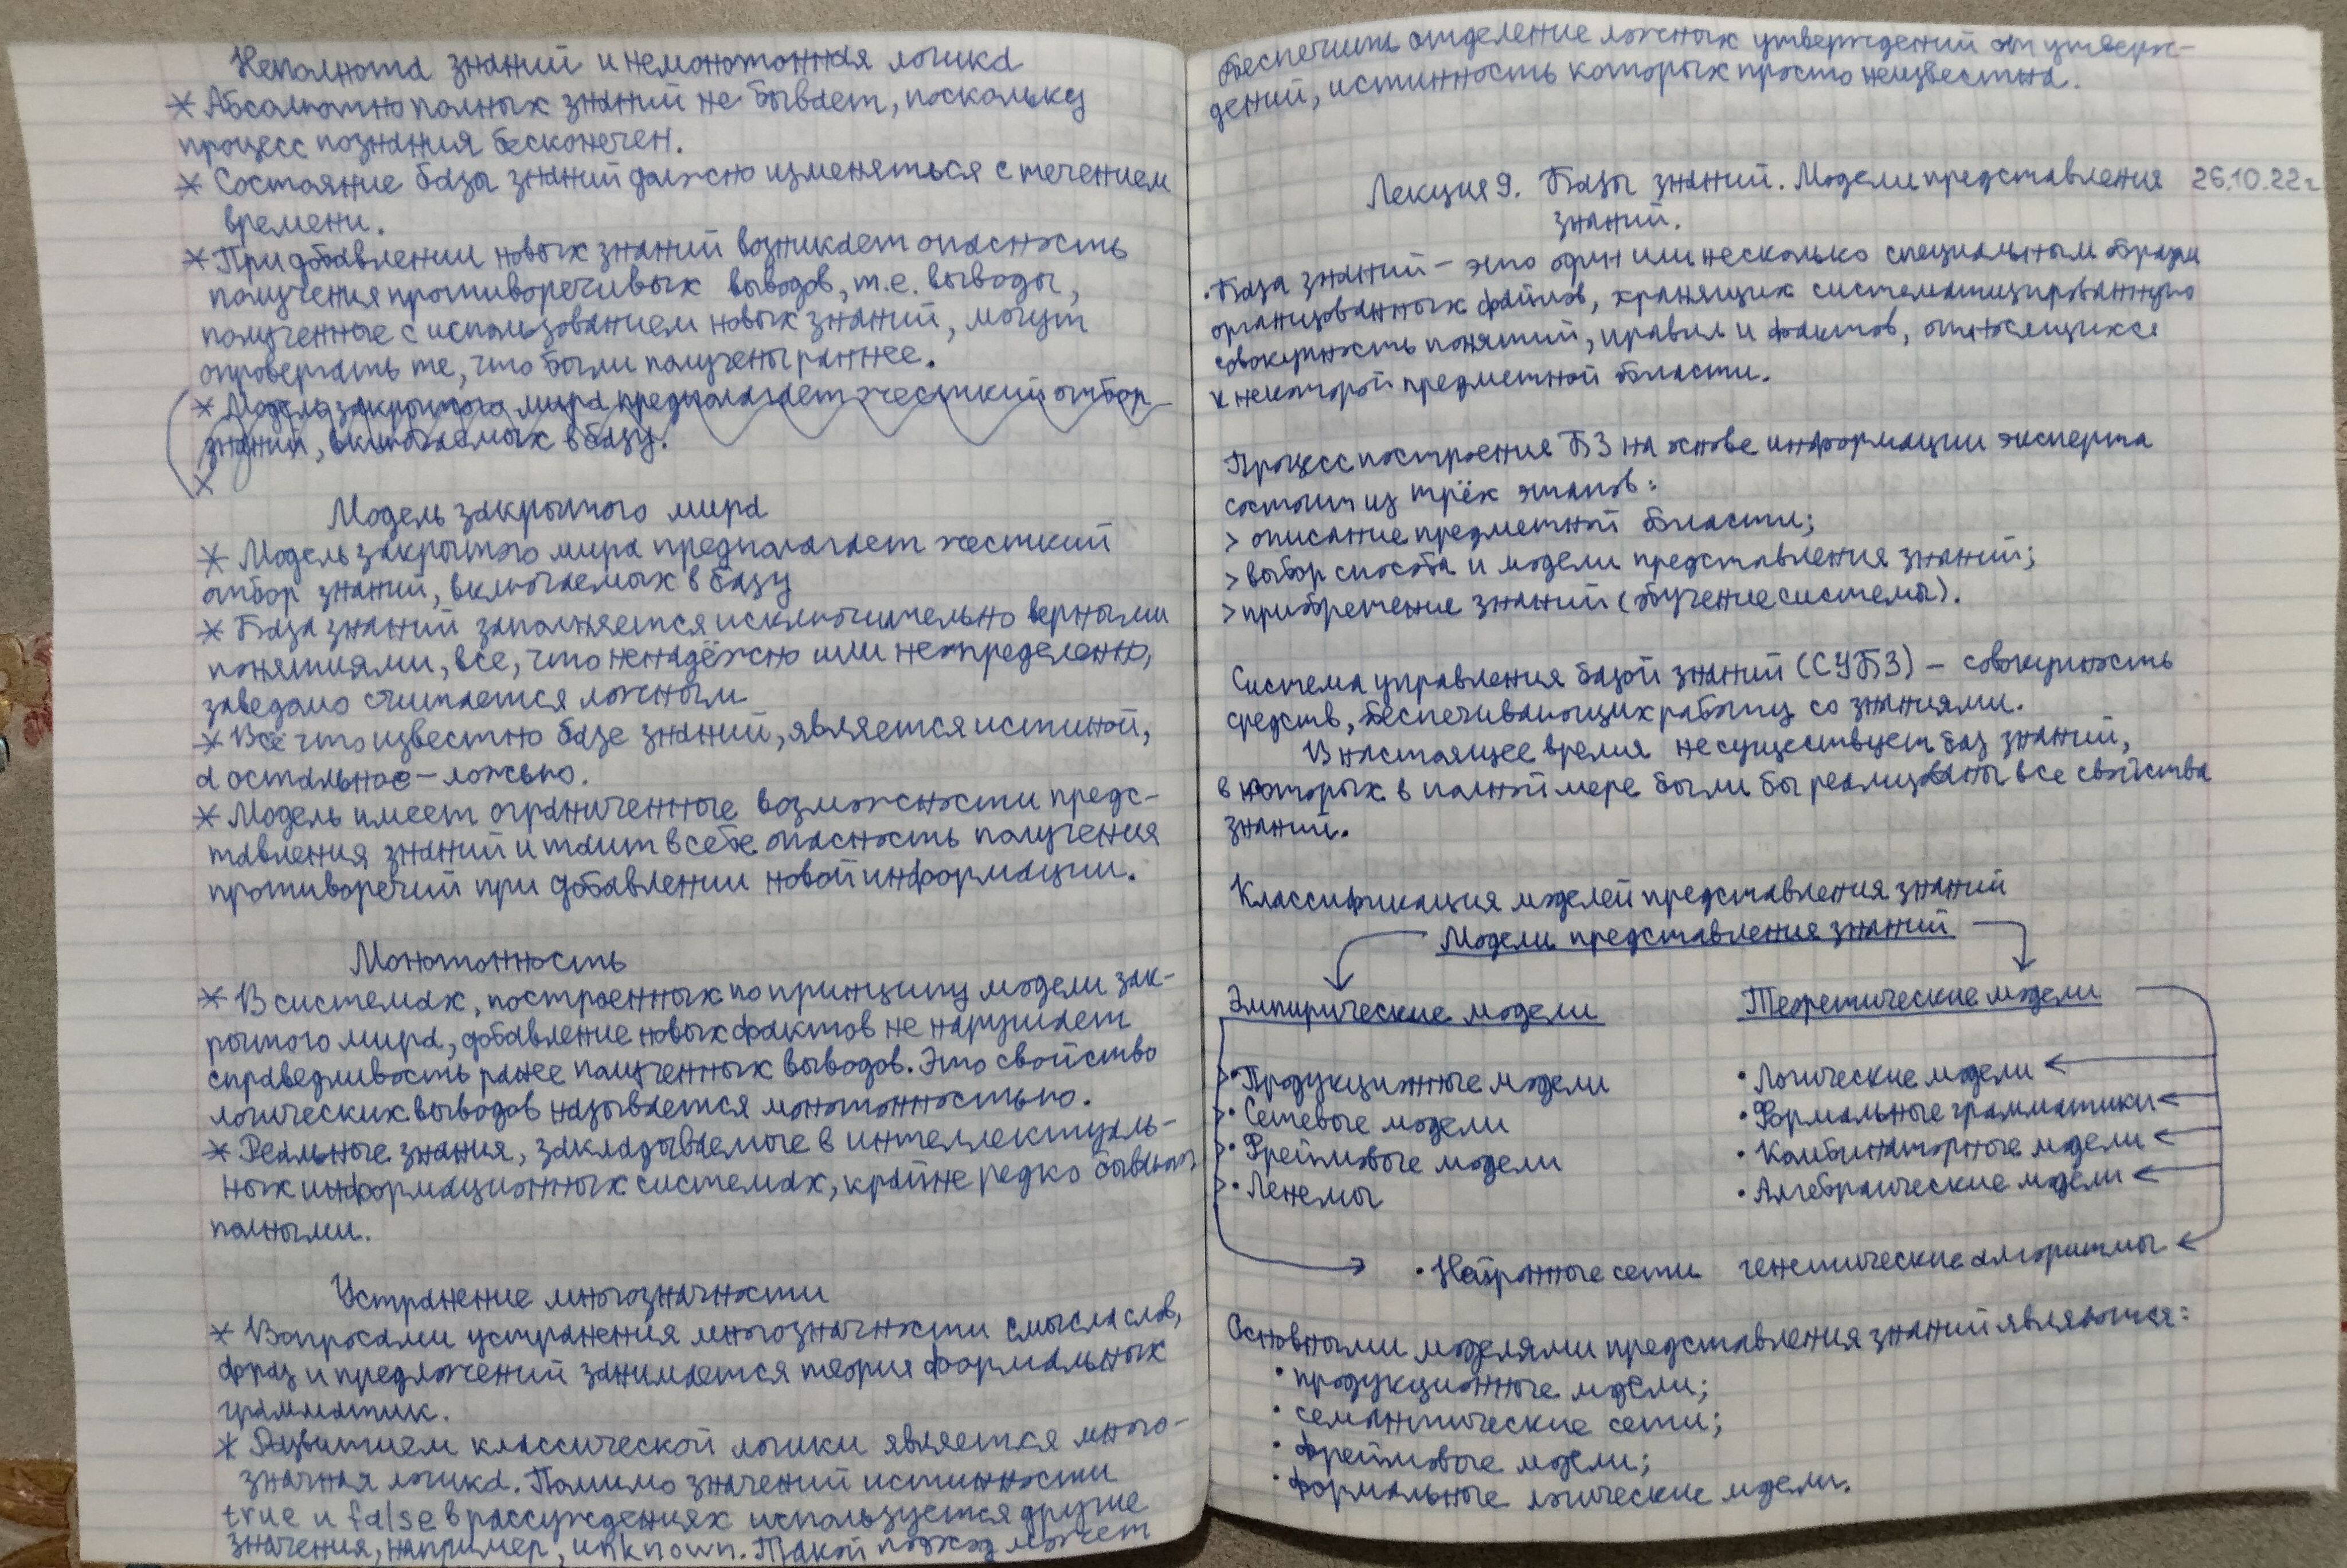 Неполнота знаний и немонотонная логика
* Абсолютно полных знаний не бывает, поскольку
процесс познания бесконечен.
* Состояние базы знаний должно изменяться с течением
времени.
* При добавлении новых знаний возникает опасность
получения противоречивых выводов, т.е. выводы,
полученные с использованием новых знаний, могут
опровергать те, что были получены раннее.
* Модель закрытого мира предполагает жесткий отбор
знаний, включаемых в базу.
*
Модель закрытого мира
* Модель закрытого мира предполагает жесткий
отбор знаний, включаемых в базу
* База знаний заполняется исключительно верными
понятиями, все, что ненадёжно или неопределенно,
заведомо считается ложным
* Всё что известно базе знаний, является истиной,
а остальное – ложью.
* Модель имеет ограниченные возможности предс-
тавления знаний и таит в себе опасность получения
противоречий при добавлении новой информации.
Монотонность
* В системах, построенных по принципу модели зак-
рытого мира, добавление новых фактов не нарушает
справедливость ранее полученных выводов. Это свойство
логических выводов называется монотонностью.
* Реальные знания, закладываемые в интеллектуаль-
ных информационных системах, крайне редко бывают
полными.
Устранение многозначности
* Вопросами устранения многозначности смысла слов,
фраз и предложений занимается теория формальных
грамматик.
* Развитием классической логики является много-
значная логика. Помимо значений истинности
true и false в рассуждениях используется другие
значения, например, unknown. Такой подход может
обеспечить отделение ложных утверждений от утверж-
дений, истинность которых просто неизвестна.
Лекция 9. Базы знаний. Модели представления 26.10.22г
знаний.
• База знаний – это один или несколько специальным образом
организованных файлов, хранящих систематизированную
совокупность понятий, правил и фактов, относящихся
к некоторой предметной области.
Процесс построения БЗ на основе информации эксперта
состоит из трёх этапов:
> описание предметной области;
> выбор способа и модели представления знаний;
> приобретение знаний (обучение системы).
Система управления базой знаний (СУБЗ) – совокупность
средств, обеспечивающих работу со знаниями.
В настоящее время не существует баз знаний,
в которых в полной мере были бы реализованы все свойства
знаний.
Классификация моделей представления знаний
Модели представления знаний
Эмпирические модели Теоретические модели
• Продукционные модели • Логические модели
• Сетевые модели • Формальные грамматики
• Фреймовые модели • Комбинаторные модели
• Ленемы • Алгебраические модели
• Нейронные сети генетические алгоритмы
Основными моделями представления знаний являются:
• продукционные модели;
• семантические сети;
• фреймовые модели;
• формальные логические модели.